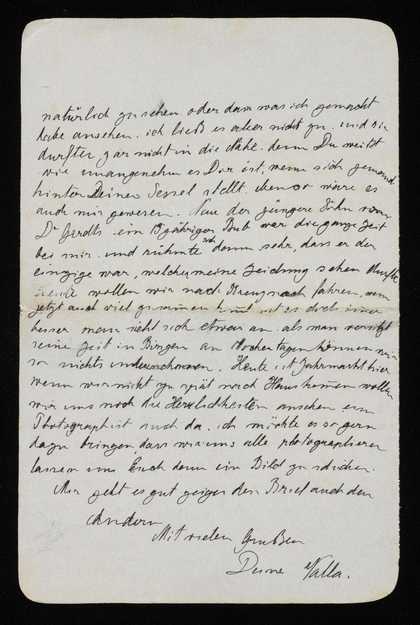 natürlich zu sehen oder das was ich gemacht
habe ansehen. ich ließ es aber nicht zu. und sie
durften gar nicht in die Nähe. denn Du weißt
wie unangenehm es Dir ist, wenn sich jemand
hinter Deinen Sessel stellt. eben so wäre es
auch mir gewesen. Nur der jüngere Sohn vom
Dr Gerdts ein 15 jähriger Bub war die ganze Zeit
bei mir und rühmte sich dann sehr, dass er der
einzige war, welcher meine Zeichnung sehen durfte
Heute wollen wir nach Kreuznach fahren, wenn
jetzt auch viel zusammen ist es doch immer
besser man sieht sich etwas an als man versitzt
seine Zeit in Bingen an Wochentagen können wir
so nichts unternehmen. Heute ist Jahrmarkt hier
wenn wir nicht zu spät nach Haus kommen wollen
wir uns noch die Herrlichkeiten ansehen ein
Photograph ist auch da. ich möchte es so gern
dazu bringen, dass wir uns alle photographieren
lassen um Euch dann ein Bild zu schicken.
Mir geht es gut zeiget den Brief auch den
Andern
Mit vielen Grüßen
Deine Valla.